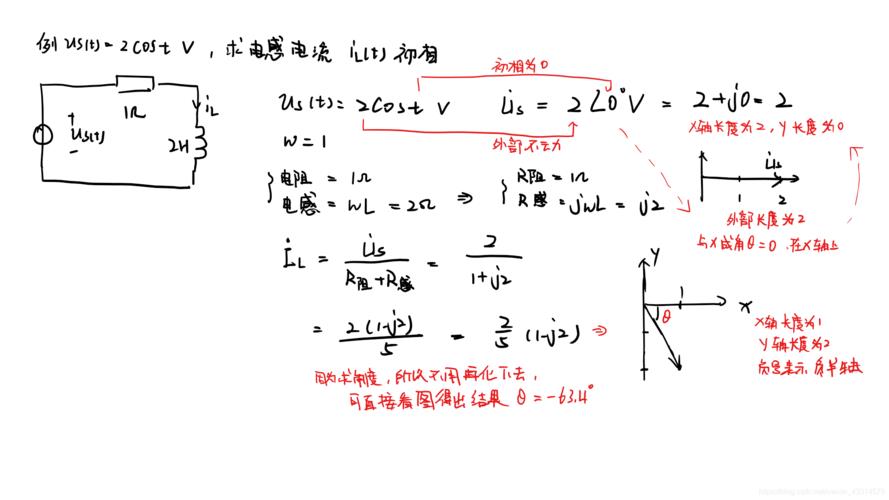 例 us(t)=2cost V，求电感电流 iL(t) 初相
初相为0
1Ω
iL
+
us(t)
-
2H
us(t)=2cost V U̇s = 2∠0°V = 2+j0=2
外部不云力
x轴长度为2，Y长度为0
w=1
U̇s
1 2
外部长度为2
与x成角θ=0 在x轴上
{电阻 = 1Ω ⇒ {R阻 = 1Ω
电感 = wL = 2Ω R感 = jwL = j2
İL = U̇s/(R阻+R感) = 2/(1+j2)
= 2(1-j2)/5 = 2/5 (1-j2) ⇒
Y
1
x
θ
x轴长度为1
Y轴长度为2
负号表示，负半轴
因为求角度，所以不用再化下去，
可直接看图得出结果 θ=-63.4°